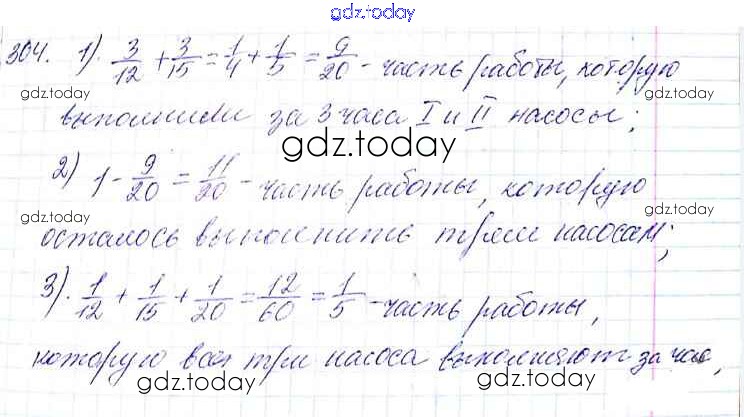 gdz.today
304. 1). 3/12 + 3/15 = 1/4 + 1/5 = 9/20 - часть работы, которую
gdz.today gdz.today
выполнили за 3 часа I и II насосы;
gdz.today
2) 1 - 9/20 = 11/20 - часть работы, которую
gdz.today gdz.today
осталось выполнить трём насосам;
3). 1/12 + 1/15 + 1/20 = 12/60 = 1/5 - часть работы,
которую все три насоса выполняют за час,
gdz.today gdz.today